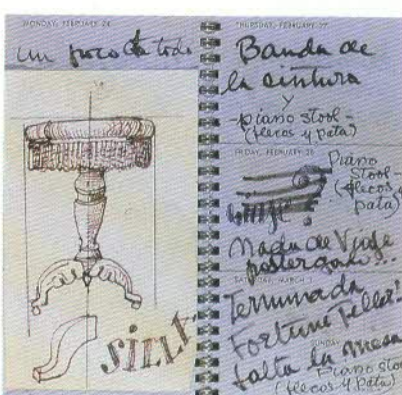 MONDAY, FEBRUARY 24
un poco de todo
SILLA
THURSDAY, FEBRUARY 27
Banda de
la cintura
y
-piano stool-
(flecos y pata)
FRIDAY, FEBRUARY 28
Piano
Stool-
(flecos y
pata)
Nada de Viaje
postergado...
SATURDAY, MARCH 1
Terminada
Fortune Teller!
SUNDAY
falta la mesa
Piano stool
(flecos y pata)